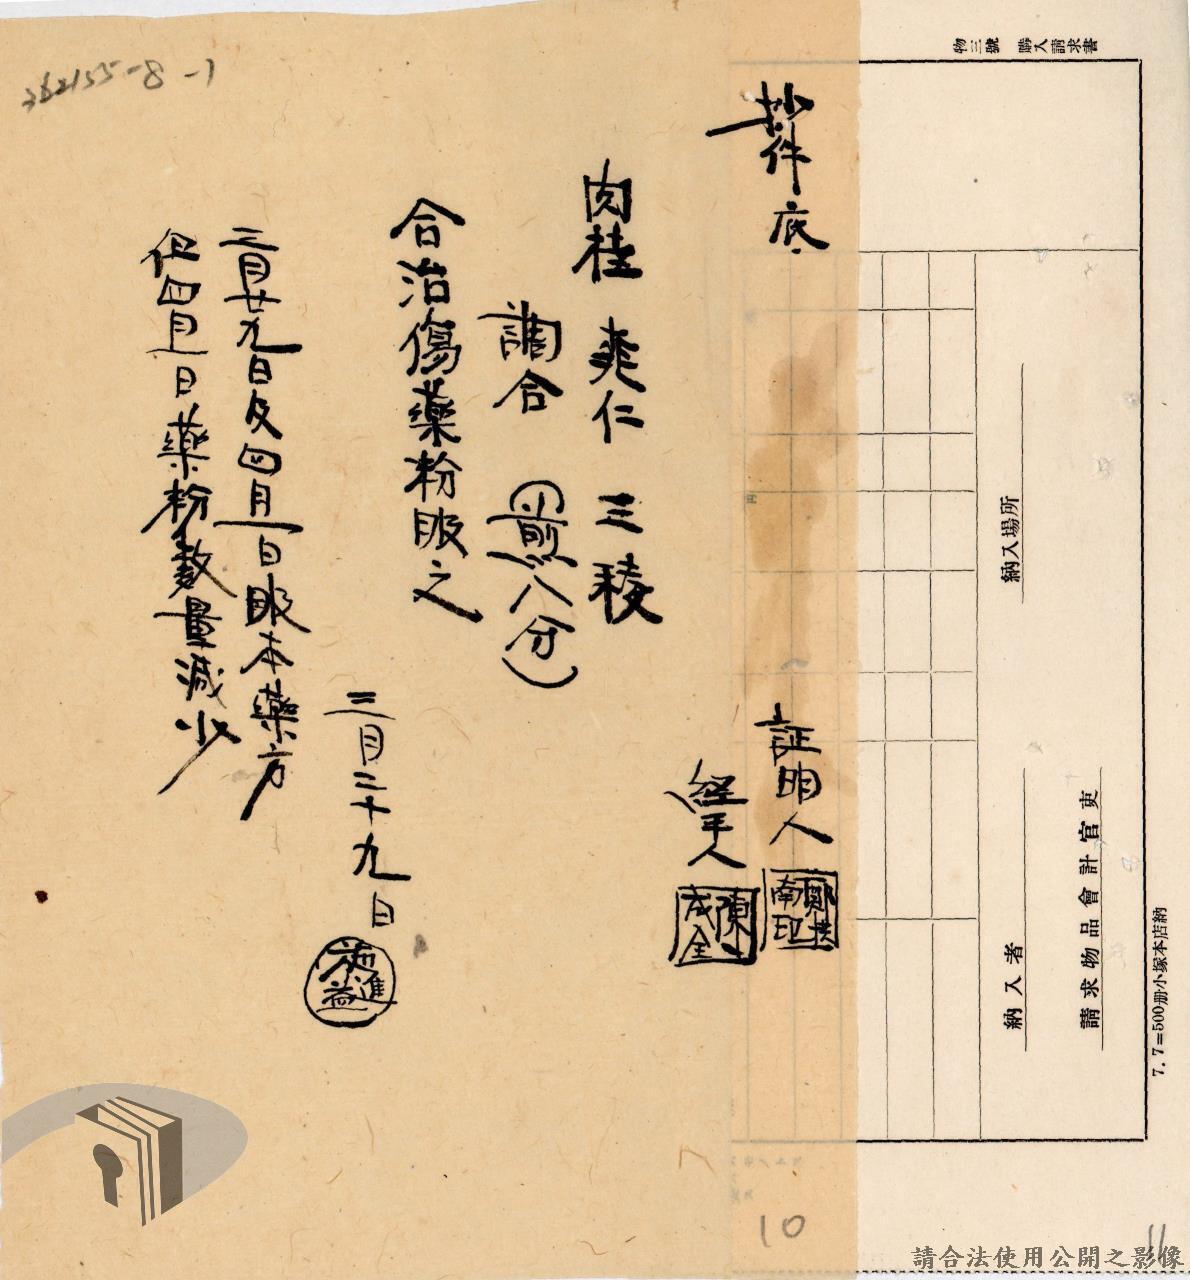 物三號 購入請求書
7.7=500册小塚本店納
請求物品會計官吏
納入場所
納入者
円
抄件底
証明人
鄭扶南印
経手人
陳 成全
肉桂 爽仁 三稜
調合 (煎八分)
合治傷藥粉服之
三月二十九日
施進益
三月廿九日及四月一日服本藥方
但四月一日藥粉數量減少
362155-8-1
10
11
請合法使用公開之影像